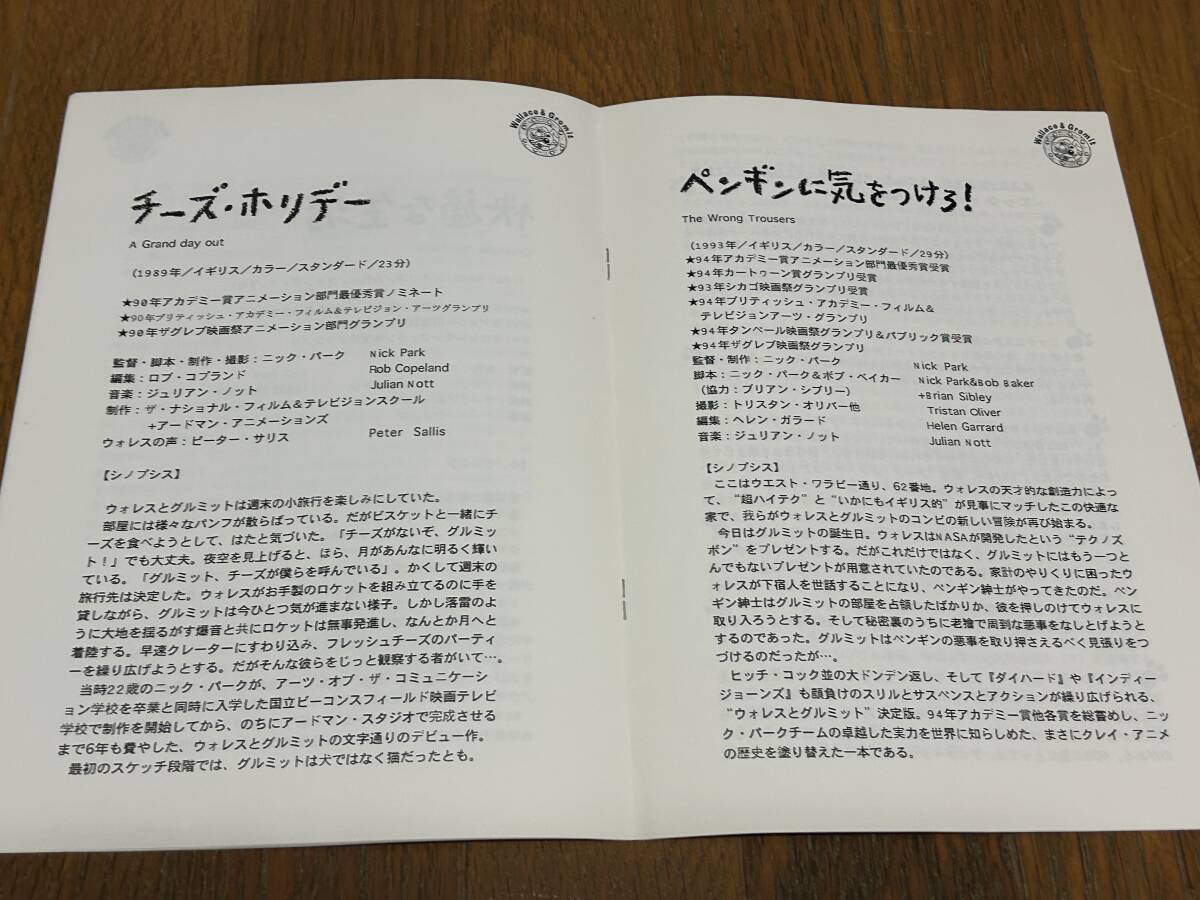 Wallace & Gromit
チーズ・ホリデー
A Grand day out
(1989年/イギリス/カラー/スタンダード/23分)
★90年アカデミー賞アニメーション部門最優秀賞ノミネート
★90年ブリティッシュ・アカデミー・フィルム&テレビジョン・アーツグランプリ
★90年ザグレブ映画祭アニメーション部門グランプリ
監督・脚本・制作・撮影:ニック・パーク Nick Park
編集:ロブ・コプランド Rob Copeland
音楽:ジュリアン・ノット Julian Nott
制作:ザ・ナショナル・フィルム&テレビジョンスクール
+アードマン・アニメーションズ
ウォレスの声:ピーター・サリス Peter Sallis
【シノプシス】
ウォレスとグルミットは週末の小旅行を楽しみにしていた。
部屋には様々なパンフが散らばっている。だがビスケットと一緒にチ
ーズを食べようとして、はたと気づいた。「チーズがないぞ、グルミッ
ト!」でも大丈夫。夜空を見上げると、ほら、月があんなに明るく輝い
ている。「グルミット、チーズが僕らを呼んでいる」。かくして週末の
旅行先は決定した。ウォレスがお手製のロケットを組み立てるのに手を
貸しながら、グルミットは今ひとつ気が進まない様子。しかし落雷のよ
うに大地を揺るがす爆音と共にロケットは無事発進し、なんとか月へと
着陸する。早速クレーターにすわり込み、フレッシュチーズのパーティ
ーを繰り広げようとする。だがそんな彼らをじっと観察する者がいて…。
当時22歳のニック・パークが、アーツ・オブ・ザ・コミュニケーシ
ョン学校を卒業と同時に入学した国立ビーコンスフィールド映画テレビ
学校で制作を開始してから、のちにアードマン・スタジオで完成させる
まで6年も費やした、ウォレスとグルミットの文字通りのデビュー作。
最初のスケッチ段階では、グルミットは犬ではなく猫だったとも。
Wallace & Gromit
ペンギンに気をつけろ!
The Wrong Trousers
(1993年/イギリス/カラー/スタンダード/29分)
★94年アカデミー賞アニメーション部門最優秀賞受賞
★94年カートゥーン賞グランプリ受賞
★93年シカゴ映画祭グランプリ受賞
★94年ブリティッシュ・アカデミー・フィルム&
テレビジョンアーツ・グランプリ
★94年タンペール映画祭グランプリ&パブリック賞受賞
★94年ザグレブ映画祭グランプリ
監督・制作:ニック・パーク Nick Park
脚本:ニック・パーク&ボブ・ベイカー Nick Park&Bob Baker
(協力:ブリアン・シブリー) +Brian Sibley
撮影:トリスタン・オリバー他 Tristan Oliver
編集:ヘレン・ガラード Helen Garrard
音楽:ジュリアン・ノット Julian Nott
【シノプシス】
ここはウエスト・ワラビー通り、62番地。ウォレスの天才的な創造力によっ
て、“超ハイテク”と“いかにもイギリス的”が見事にマッチしたこの快適な
家で、我らがウォレスとグルミットのコンビの新しい冒険が再び始まる。
今日はグルミットの誕生日。ウォレスはNASAが開発したという“テクノズ
ボン”をプレゼントする。だがこれだけではなく、グルミットにはもう一つと
んでもないプレゼントが用意されていたのである。家計のやりくりに困ったウ
ォレスが下宿人を世話することになり、ペンギン紳士がやってきたのだ。ペン
ギン紳士はグルミットの部屋を占領したばかりか、彼を押しのけてウォレスに
取り入ろうとする。そして秘密裏のうちに老獪で周到な悪事をなしとげようと
するのであった。グルミットはペンギンの悪事を取り押さえるべく見張りをつ
づけるのだったが…。
ヒッチ・コック並の大ドンデン返し、そして『ダイハード』や『インディー
ジョーンズ』も顔負けのスリルとサスペンスとアクションが繰り広げられる、
“ウォレスとグルミット”決定版。94年アカデミー賞他各賞を総嘗めし、ニッ
ク・パークチームの卓越した実力を世界に知らしめた、まさにクレイ・アニメ
の歴史を塗り替えた一本である。